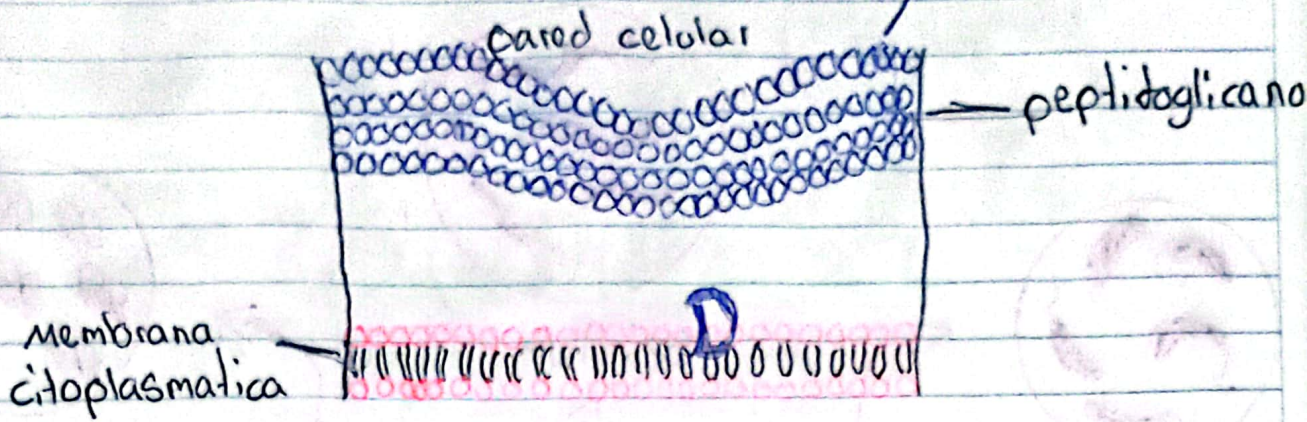 pared celular
peptidoglicano
Membrana
citoplasmatica